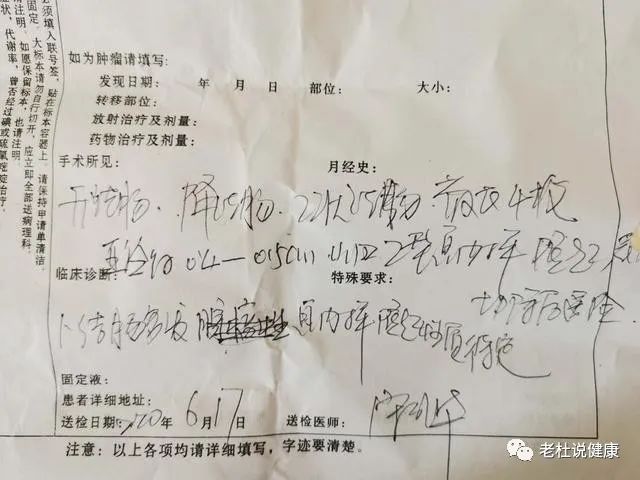 须填入联号签，贴在标本容器上，请保持申请单清洁。
固定，大标本请勿自行切开，应立即全部送病理科。
请注明。如愿保留标本，也请注明。
症状，代谢率，曾否经过碘或硫氧嘧啶治疗。
如为肿瘤请填写：
发现日期： 年 月 日 部位： 大小：
转移部位：
放射治疗及剂量：
药物治疗及剂量：
手术所见： 月经史：
升结肠、降结肠、乙状结肠 散在4枚
直径约0.4-0.5cm 山田2型息肉样隆起
临床诊断： 特殊要求：
切除后送检
1、结肠多发 息肉样隆起性质待定
固定液：
患者详细地址：
送检日期：20年 6月17日 送检医师：
注意：以上各项均请详细填写，字迹要清楚。
老杜说健康